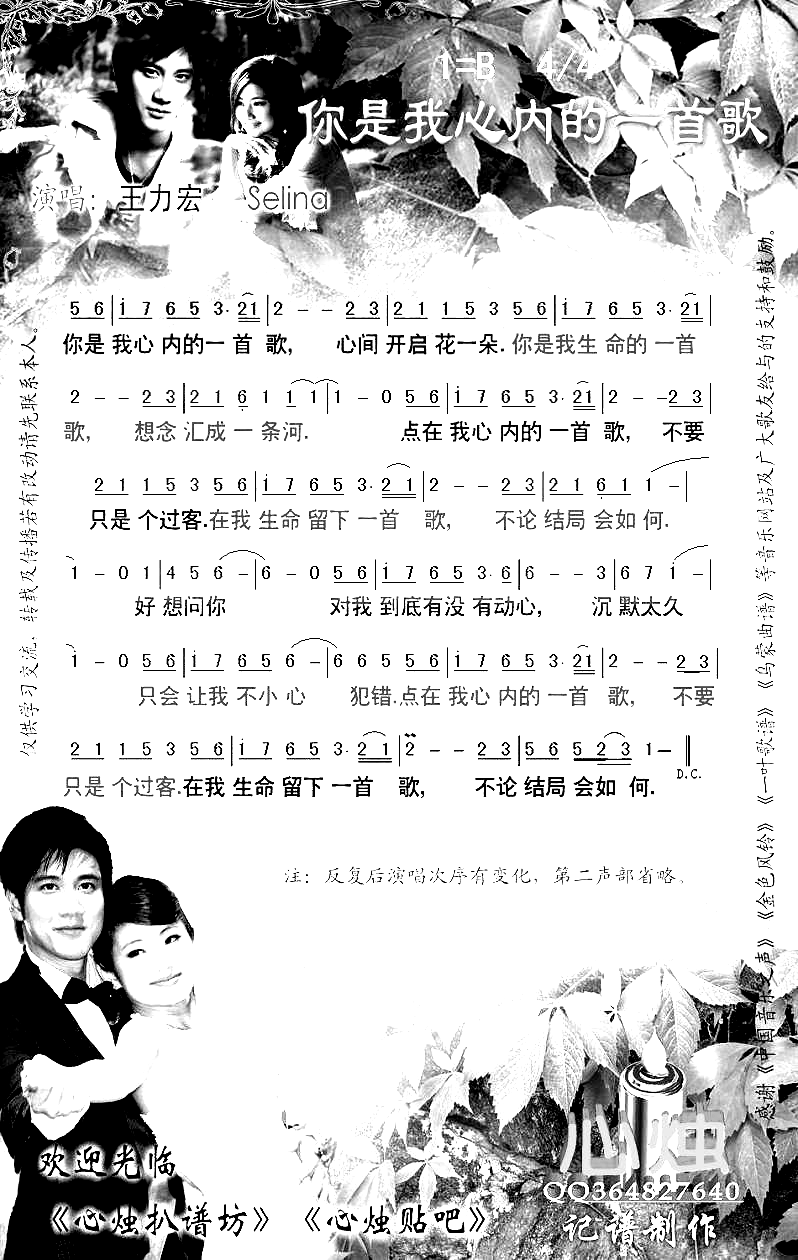 1=B 4/4
你是我心内的一首歌
演唱：王力宏 Selina
5 6 | i 7 6 5 3· 2 1 | 2 - - 2 3 | 2 1 1 5 3 5 6 | i 7 6 5 3· 2 1 |
你是 我心 内的一 首 歌, 心间 开启 花一 朵. 你是我生 命的 一首
2 - - 2 3 | 2 1 6 1 1 1 | 1 - 0 5 6 | i 7 6 5 3· 2 1 | 2 - - 2 3 |
歌, 想念 汇成 一 条河. 点在 我心 内的一 首 歌, 不要
2 1 1 5 3 5 6 | i 7 6 5 3· 2 1 | 2 - - 2 3 | 2 1 6 1 1 - |
只是 个过客.在我 生命 留下 一首 歌, 不论 结局 会如 何.
1 - 0 1 | 4 5 6 6 | 6 - 0 5 | i 7 6 5 3· 6 | 6 - - 3 | 6 7 i - |
好 想问你 对我 到底有没 有动心, 沉 默太久
i - 0 5 6 | i 7 6 5 6 | 6 6 5 5 6 | i 7 6 5 3· 2 1 | 2 - - 2 3 |
只会 让我 不小 心 犯错.点在 我心 内的一 首 歌, 不要
2 1 1 5 3 5 6 | i 7 6 5 3· 2 1 | 2 - - 2 3 | 5 6 5 2 3 1 - ‖
D.C.
只是 个过客.在我 生命 留下 一首 歌, 不论 结局 会如 何.
注：反复后演唱次序有变化，第二声部省略。
仅供学习交流，转载及传播若有改动请先联系本人。
感谢《中国音乐之声》《金色风铃》《一叶歌谱》《乌蒙曲谱》等音乐网站及广大歌友给与的支持和鼓励。
欢迎光临
《心烛扒谱坊》《心烛贴吧》
心烛
QQ364827640
记谱制作